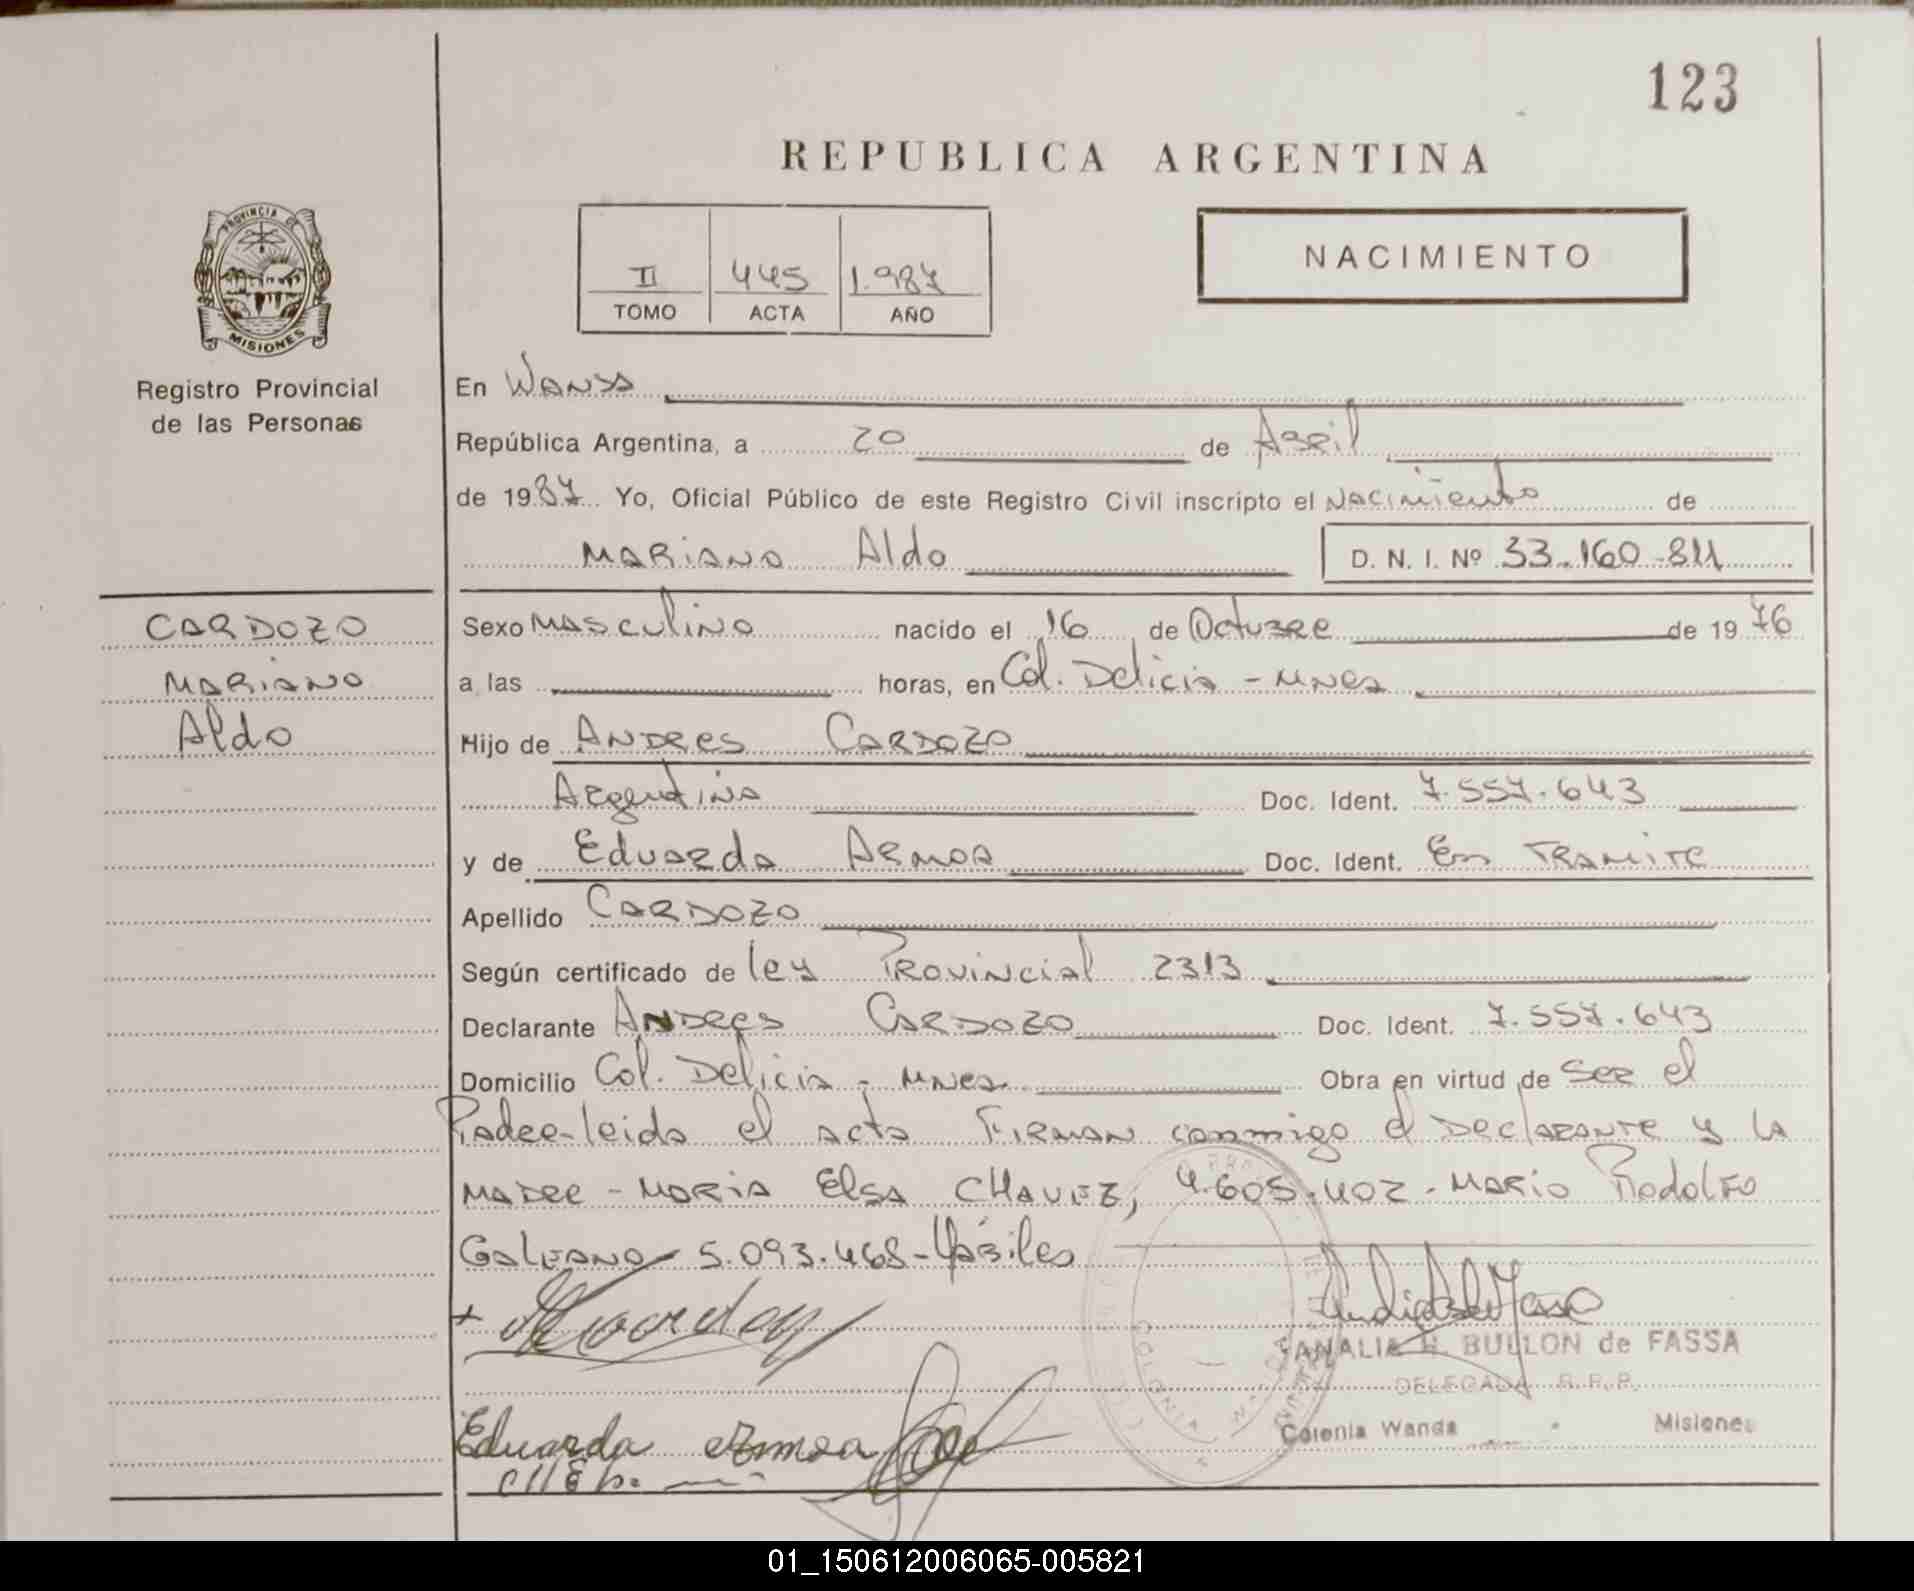 123
REPUBLICA ARGENTINA
PROVINCIA DE
MISIONES
Registro Provincial
de las Personas
II 445 1.987
TOMO ACTA AÑO
NACIMIENTO
En Wanda
República Argentina, a 20 de Abril
de 1987 Yo, Oficial Público de este Registro Civil inscripto el Nacimiento de
Mariano Aldo D. N. I. Nº 33.160.811
CARDOZO
Mariano
Aldo
Sexo Masculino nacido el 16 de Octubre de 1976
a las horas, en Col. Delicia - Mnes
Hijo de Andres Cardozo
Argentina Doc. Ident. 7.557.643
y de Eduarda Armoa Doc. Ident. En Tramite
Apellido Cardozo
Según certificado de ley Provincial 2313
Declarante Andres Cardozo Doc. Ident. 7.557.643
Domicilio Col. Delicia - Mnes. Obra en virtud de Ser el
Padre-leida el acta Firman conmigo el Declarante y la
Madre - Maria Elsa CHAVEZ, 4.605.402 - Mario Rodolfo
Galeano - 5.093.468 - Hábiles
ANALIA H. BULLON de FASSA
DELEGADA R. P. P.
Colonia Wanda Misiones
Eduarda Armoa
01_150612006065-005821